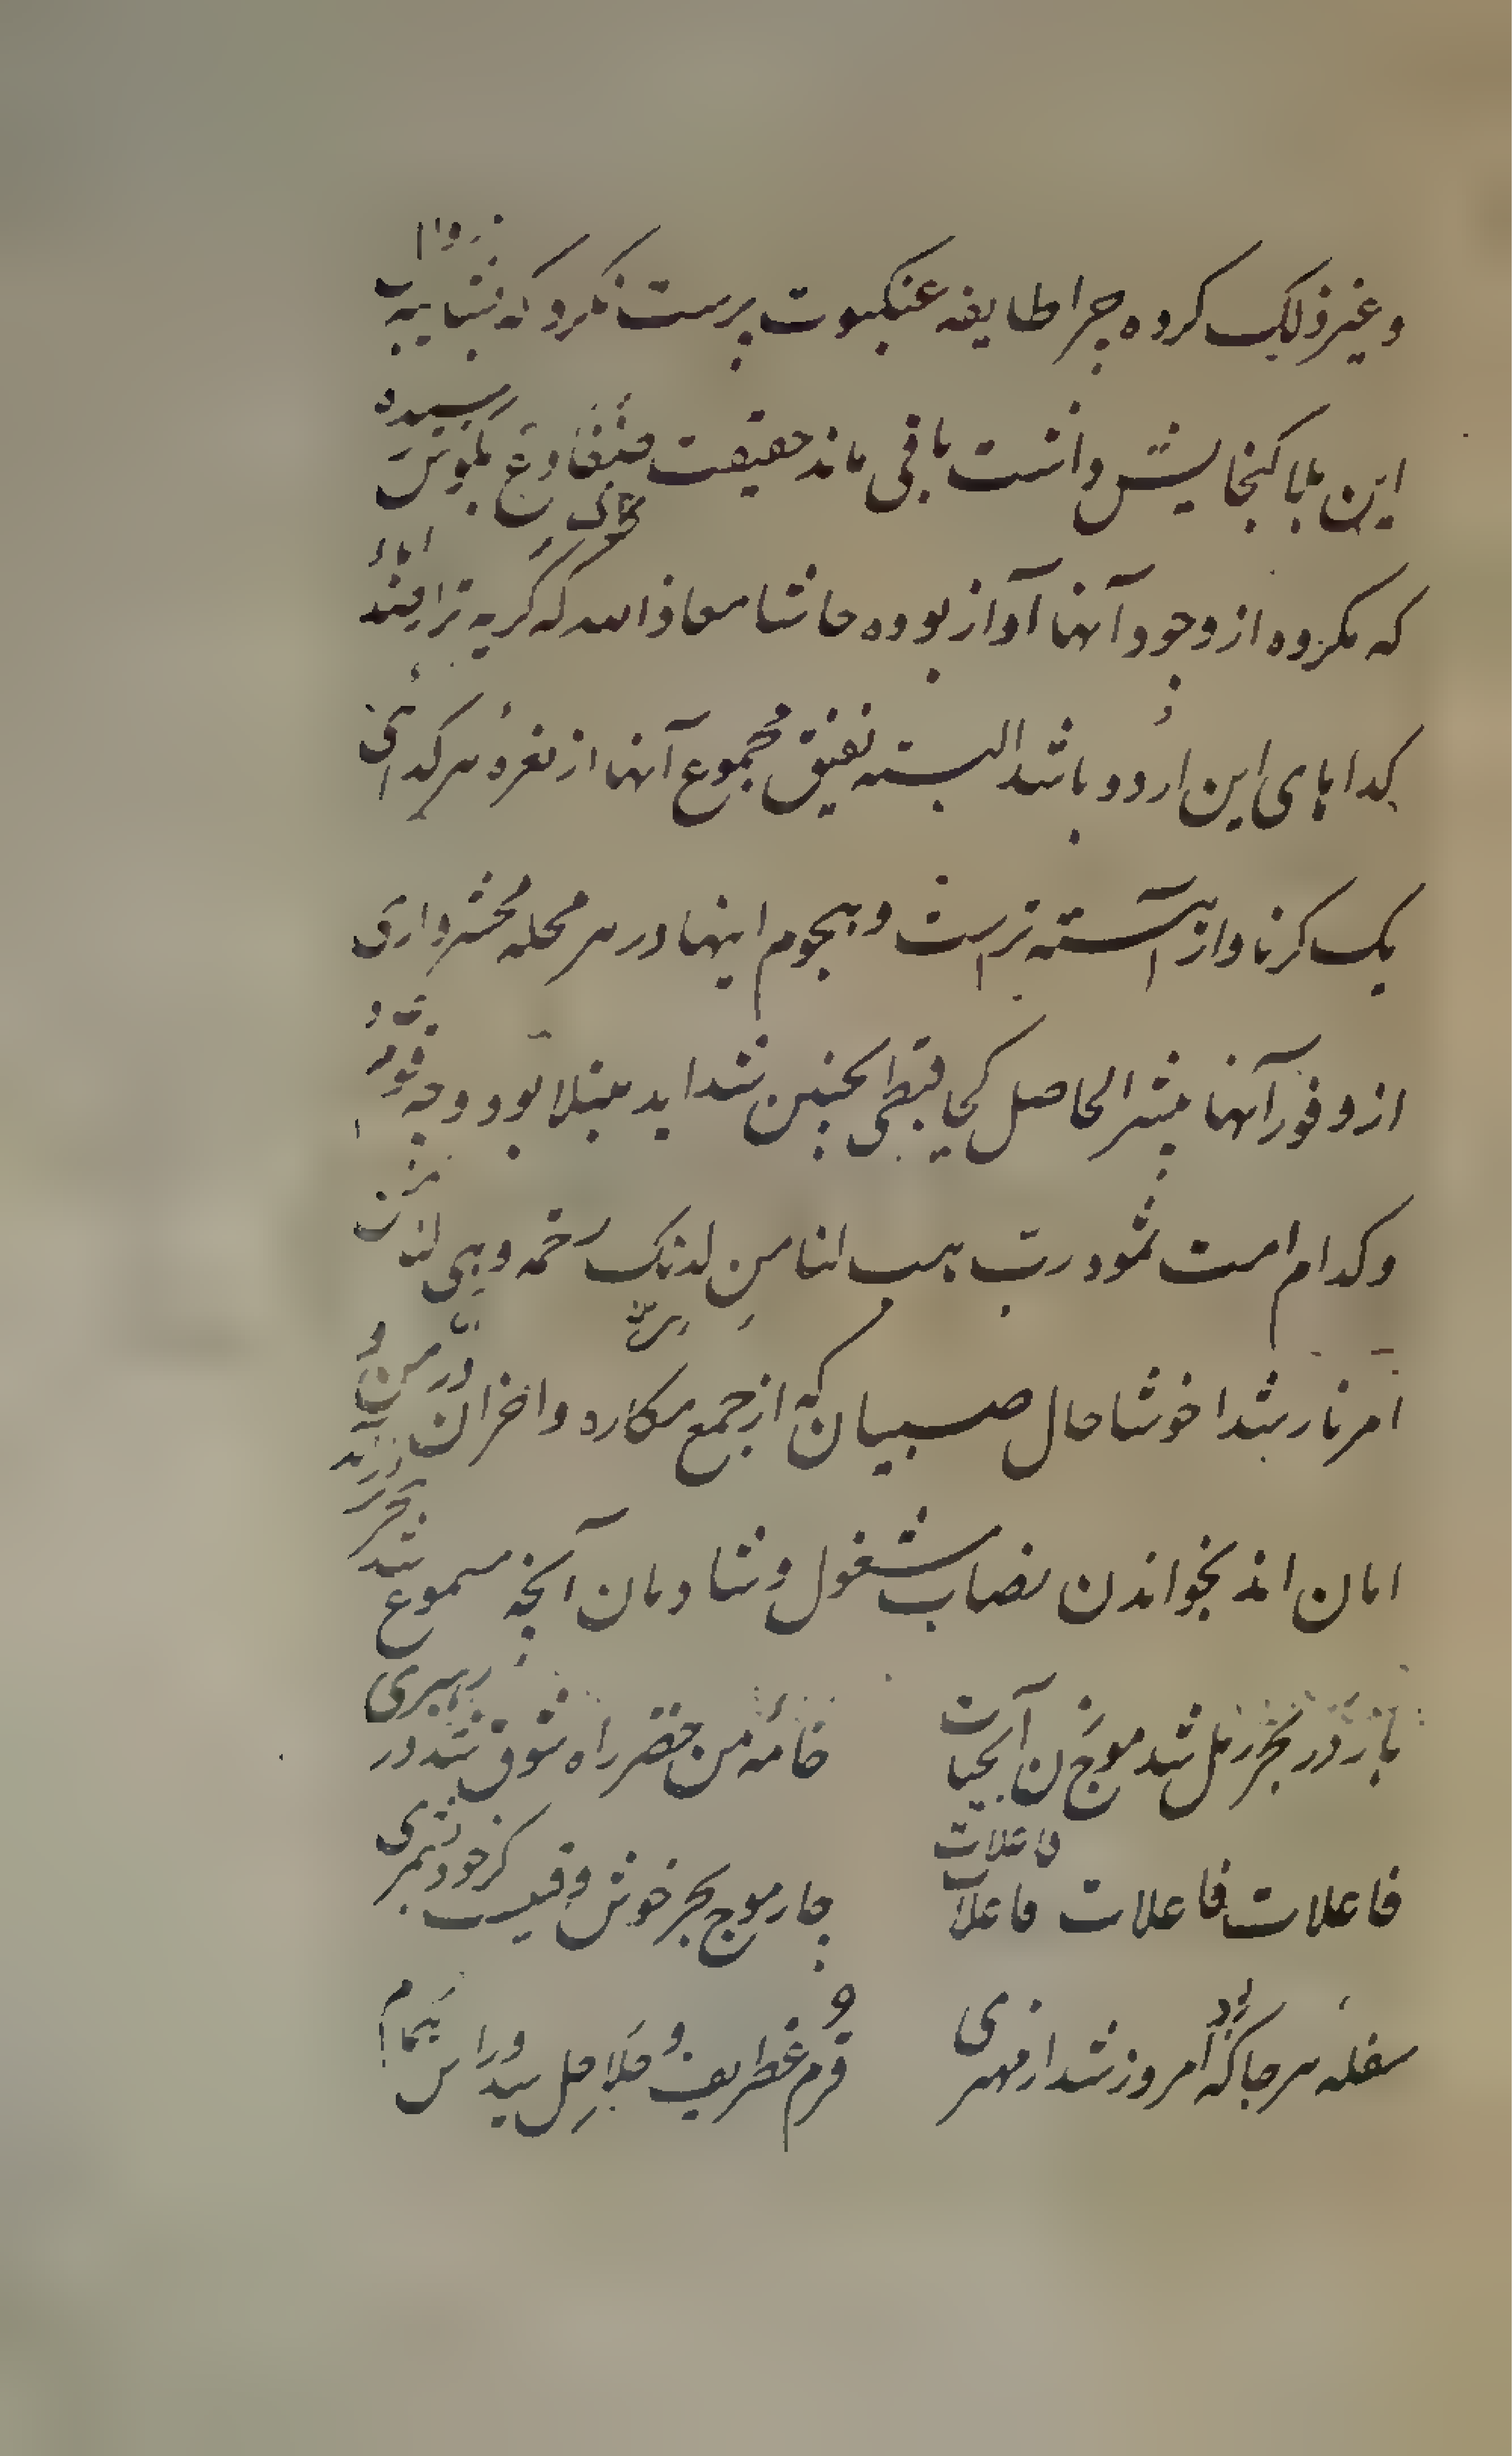 و غیر ذلک کرده چرا طایفه عنکبوت پرست نکرد که
این بلا کنجایش داشت باقی ماند حقیقت ضفادع بکوش رسیده
که مکروه از وجود آنها آواز بوده حاشا معاذالله که کریه تر
کداهای این اردو باشد البته نقیق مجموع آنها از نعرهٔ هر کدای
یک کرنا واز آهسته تر است و هجوم اینها در هر محله محشر داری
از وفور آنها بیشتر الحاصل کجا قبطی اینچنین شداید مبتلا بود و چه قوم
و کدام امت ثمود ربّ هب لنا من لدنک رحمه و هیی لنا من
امرنا رشدا خوشا حال صبیان که از جمع مکاره و احزان در من و
امان اند بخواندن نصاب مشغول و شادمان آنچه مسموع شد
باز در بحر رمل شد موج زن آبحیات
خامهٔ من خضر راه شوق شد در رهبری
فاعلات فاعلات فاعلات فاعلات
چار موج بحر خوش وقتیست کز خود بشمری
سفله هر جا که بود امروز شد از مهتری
قرم و غطریف و حلاحل سید و راس همام